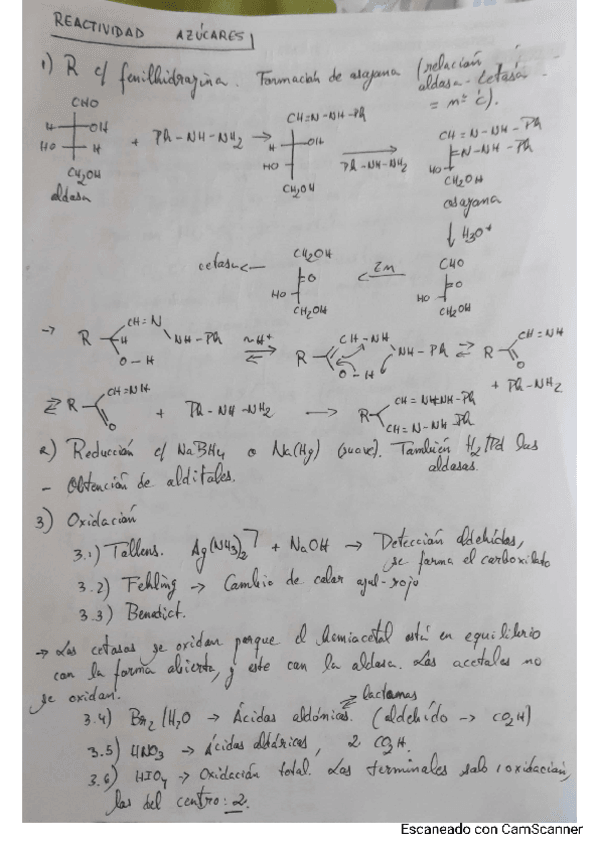 REACTIVIDAD AZÚCARES
1) R c/ fenilhidrazina. Formación de osazona (relación aldosa - cetosa = nº C).
CHO
H OH
HO H
CH2OH
aldosa
+ Ph-NH-NH2 →
CH=N-NH-Ph
H OH
HO
CH2OH
Ph-NH-NH2
CH=N-NH-Ph
=N-NH-Ph
HO
CH2OH
osazona
↓ H3O+
CHO
O
HO
CH2OH
← Zn
CH2OH
O
HO
CH2OH
cetosa ←
→ R CH=N NH-Ph
H
O-H
~H+
⇄
R CH-NH NH-Ph
O-H
⇄ R CH=NH
O
+ Ph-NH2
⇄ R CH=NH
O
+ Ph-NH-NH2 → R CH=N-NH-Ph
C=N-NH-Ph
2) Reducción c/ NaBH4 o Na(Hg) (suave). También H2/Pd las aldosas.
- Obtención de alditoles.
3) Oxidación
3.1) Tollens. Ag(NH3)2 + NaOH → Detección aldehídos, se forma el carboxilato
3.2) Fehling → Cambio de color azul-rojo
3.3) Benedict.
→ Las cetosas se oxidan porque el hemiacetal está en equilibrio
con la forma abierta, y este con la aldosa. Los acetales no
se oxidan.
⇄ lactonas
3.4) Br2/H2O → Ácidos aldónicos. (aldehído → CO2H)
3.5) HNO3 → Ácidos aldáricos, 2 CO2H.
3.6) HIO4 → Oxidación total. Los terminales solo 1 oxidación,
los del centro: 2.
Escaneado con CamScanner